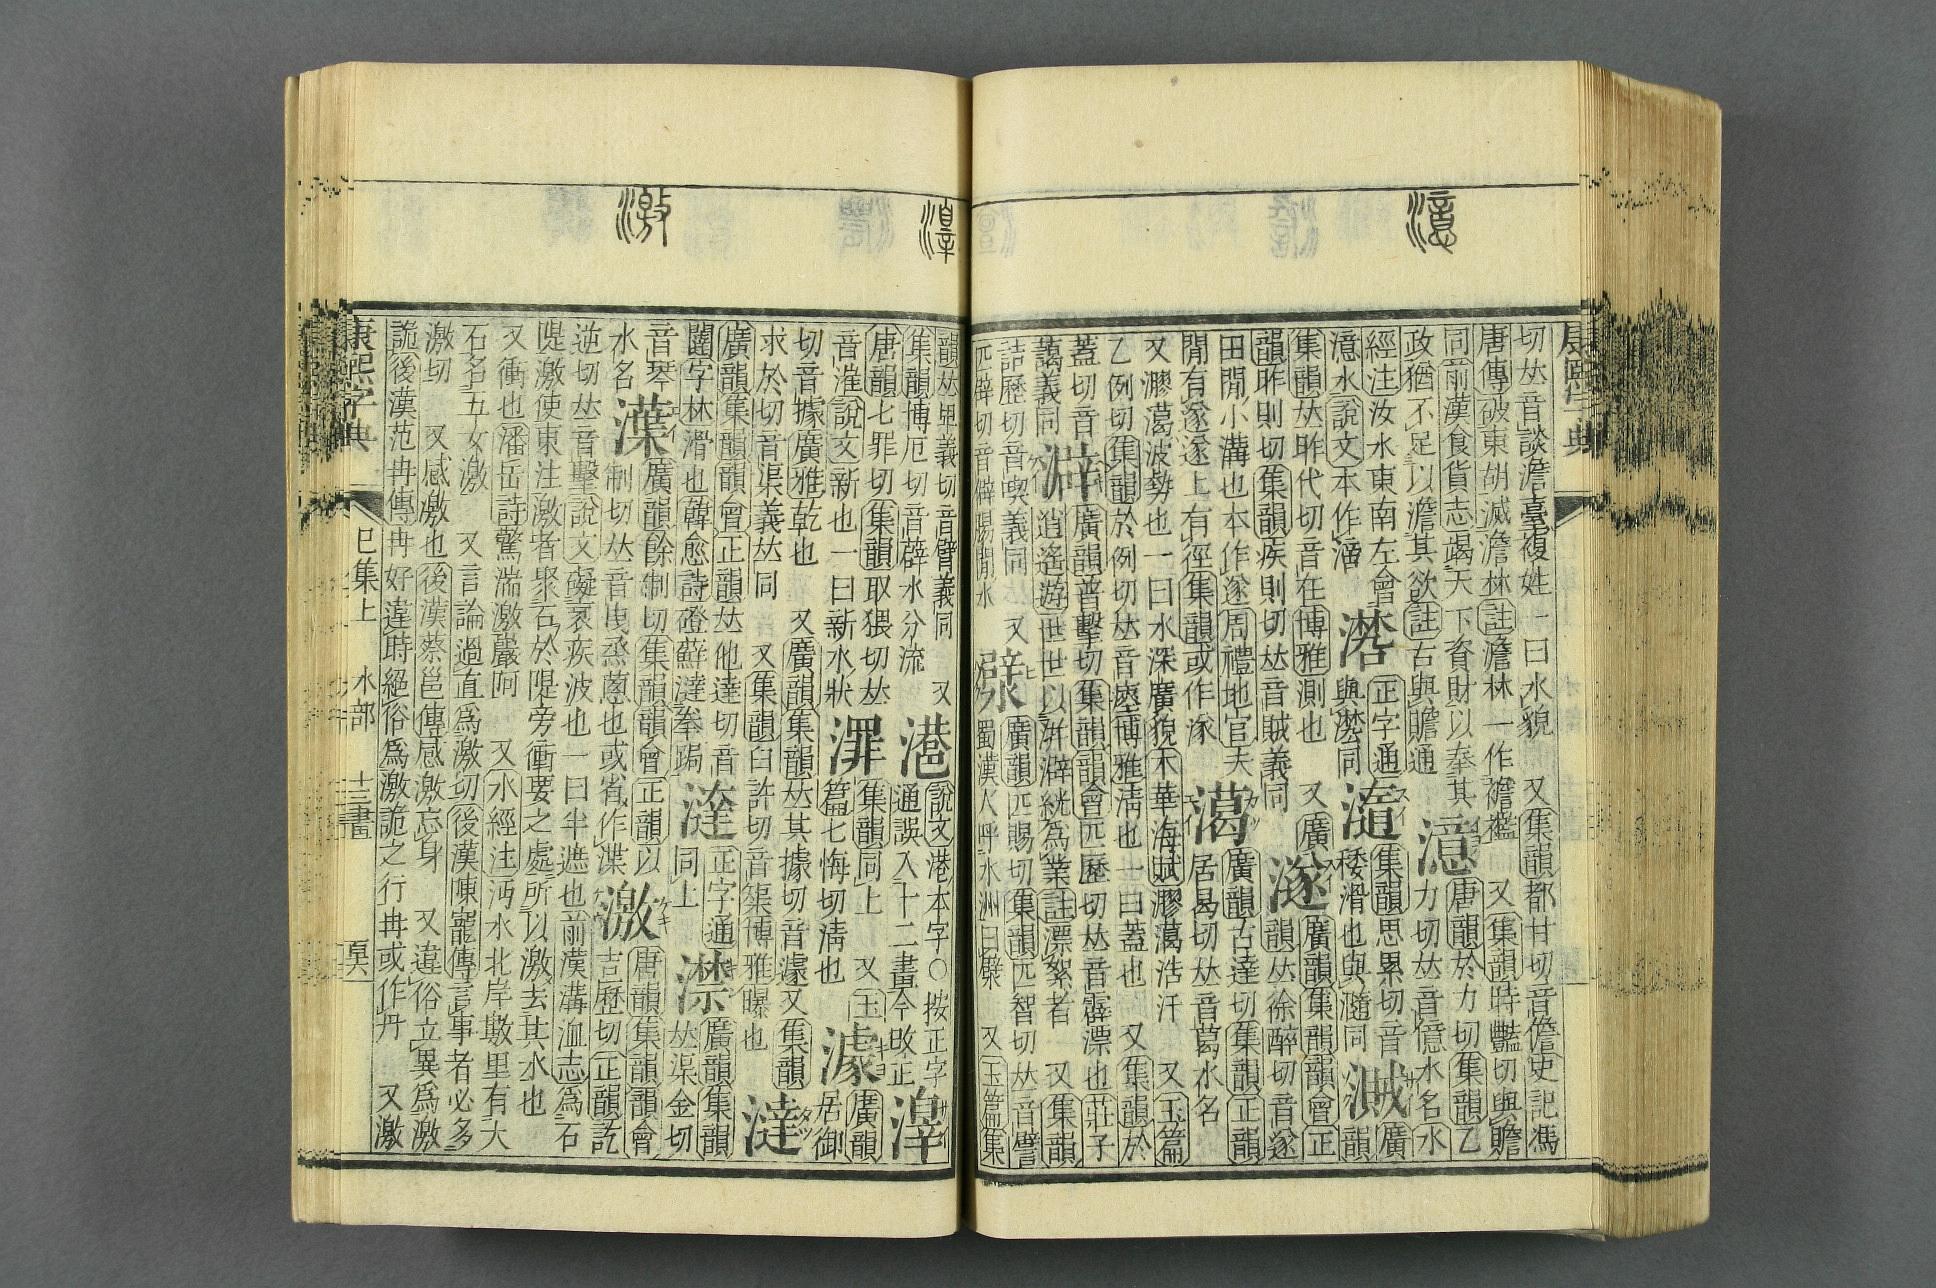 澺
切𠀤音談澹臺複姓一曰水貌 又集韻都甘切音儋史記馮
唐傳破東胡滅澹林註澹林一作襜襤 又集韻時豔切與贍
同前漢食貨志竭天下資財以奉其
政猶不足以澹其欲註古與贍通 澺 唐韻於力切集韻乙
力切𠀤音億水名水
經注汝水東南左會
澺水說文本作
正字通
與 同
集韻思累切音
滫滑也與瀡同
廣
韻昨則切集韻疾則切𠀤音賊義同
集韻𠀤昨代切音在博雅測也 又廣
澻 廣韻集韻韻會正
韻𠀤徐醉切音遂
田閒小溝也本作遂周禮地官夫
閒有遂遂上有徑集韻或作㒸
廣韻古達切集韻正韻
居曷切𠀤音葛水名
又㶀䔽波勢也一曰水深廣貌木華海賦膠 浩汗 又玉篇
乙例切集韻於例切𠀤音 博雅淸也一曰蓋也 又集韻於
蓋切音
藹義同
澼 廣韻普擊切集韻韻會匹歷切𠀤音霹漂也莊子
逍遙遊世世以洴澼絖爲業註漂絮者 又集韻
詰歷切音喫義同 又
廣韻匹賜切集韻匹智切𠀤音譬
匹辟切音僻腸閒水
蜀漢人呼水洲曰 又玉篇集
激
韻𠀤 義切音臂義同
集韻博厄切音薜水分流 又
港 說文港本字○按正字
通誤入十二畫今改正
唐韻七罪切集韻取猥切𠀤
音漼說文新也一曰新水狀
集韻同上 又玉
篇七悔切淸也
澽 廣韻
居御
切音據廣雅乾也 又廣韻集韻𠀤其據切音遽又集韻
求於切音渠義𠀤同 又集韻臼許切音 博雅曝也
澾
廣韻集韻韻會正韻𠀤他達切音
闥字林滑也韓愈詩磴蘚澾拳跼
正字通
同上
澿 廣韻集韻
𠀤渠金切
音琴
水名
廣韻餘制切集韻韻會正韻以
制切𠀤音曳烝蔥也或省作渫
激 唐韻集韻韻會
吉歷切正韻訖
逆切𠀤音擊說文礙衺疾波也一曰半遮也前漢溝洫志爲石
隄激使東注激者聚石於隄旁衝要之處所以激去其水也
又衝也潘岳詩驚湍激巖阿 又水經注沔水北岸數里有大
石名五女激 又言論過直爲激切後漢陳寵傳言事者必多
激切 又感激激也後漢蔡邕傳感激忘身 又違俗立異爲激
詭後漢范冉傳冉好違時絕俗爲激詭之行冉或作丹 又激
康熙字典 巳集上 水部 十三畫